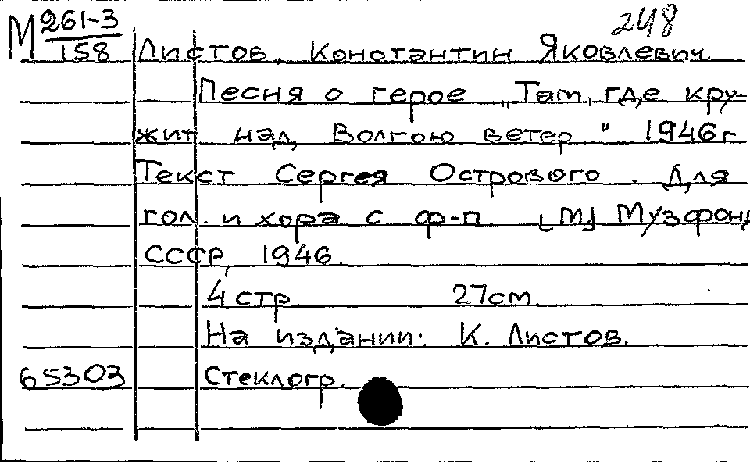 248
М 261-3
158 Листов, Константин Яковлевич.
Песня о герое „Там, где кру-
жит над Волгою ветер" 1946г.
Текст Сергея Острового. Для
гол. и хора с ф-п. [М] Музфонд
СССР, 1946.
4 стр 27см.
На издании: К. Листов.
65303 Стеклогр.